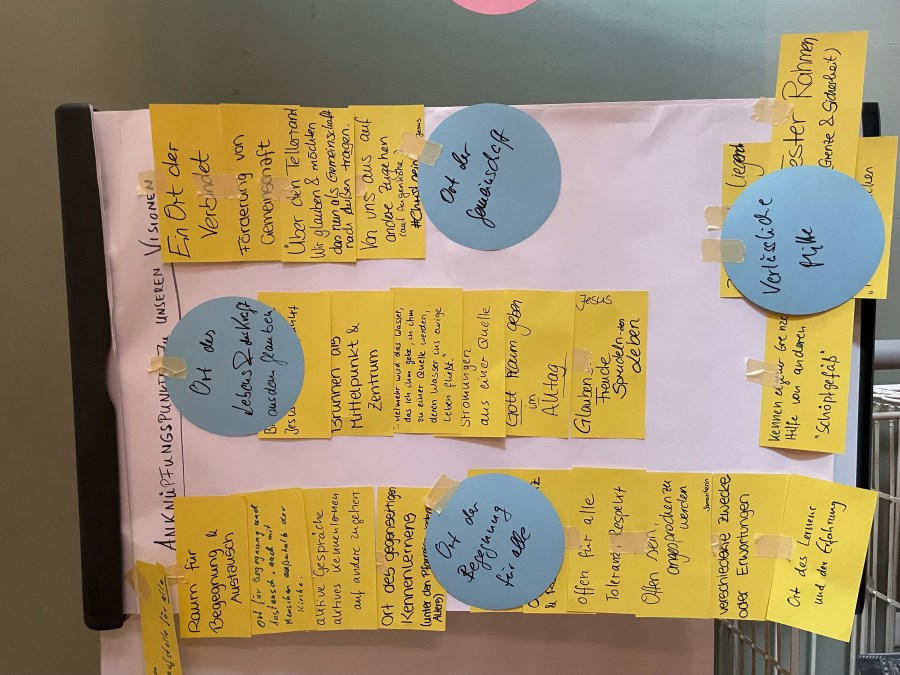 ANKNÜPFUNGSPUNKTE ZU UNSEREN VISIONEN
für alle
Raum für
Begegnung &
Austausch
Ort für Begegnung und
Austausch, auch mit
Menschen außerhalb der
Kirche.
aktive Gespräche
aktives Kennenlernen
auf andere zugehen
Ort des gegenseitigen
Kennenlernens
(unter der
Alter)
Ort der
Begegnung
für alle
Offen für alle
Toleranz, Respekt
Offen sein,
angesprochen zu
werden
verschiedene Zwecke
oder Erwartungen
Ort des Lernens
und der Erfahrung
Ort des
Lebens & der Kraft
aus dem Glauben
Jesus
Brunnen als
Mittelpunkt &
Zentrum
"Vielmehr wird das Wasser,
das ich ihm gebe, in ihm
zu einer Quelle werden,
deren Wasser ins ewige
Leben fließt."
Strömungen
aus einer Quelle
Gott Raum geben
im
Alltag
Jesus
Glauben
Freude
Sprudeln
Leben
Ein Ort der
Verbindet
Förderung von
Gemeinschaft
Über den Tellerrand
Wir glauben & möchten
das nun als Gemeinschaft
nach außen tragen.
Von uns aus auf
andere zugehen
(auf Augenhöhe
Jesus
Ort der
Gemeinschaft
Fester Rahmen
(Grenze & Sicherheit)
Verlässliche
Hilfe
Kennen eigener Grenze
Hilfe von anderen
"Schöpfgefäß"